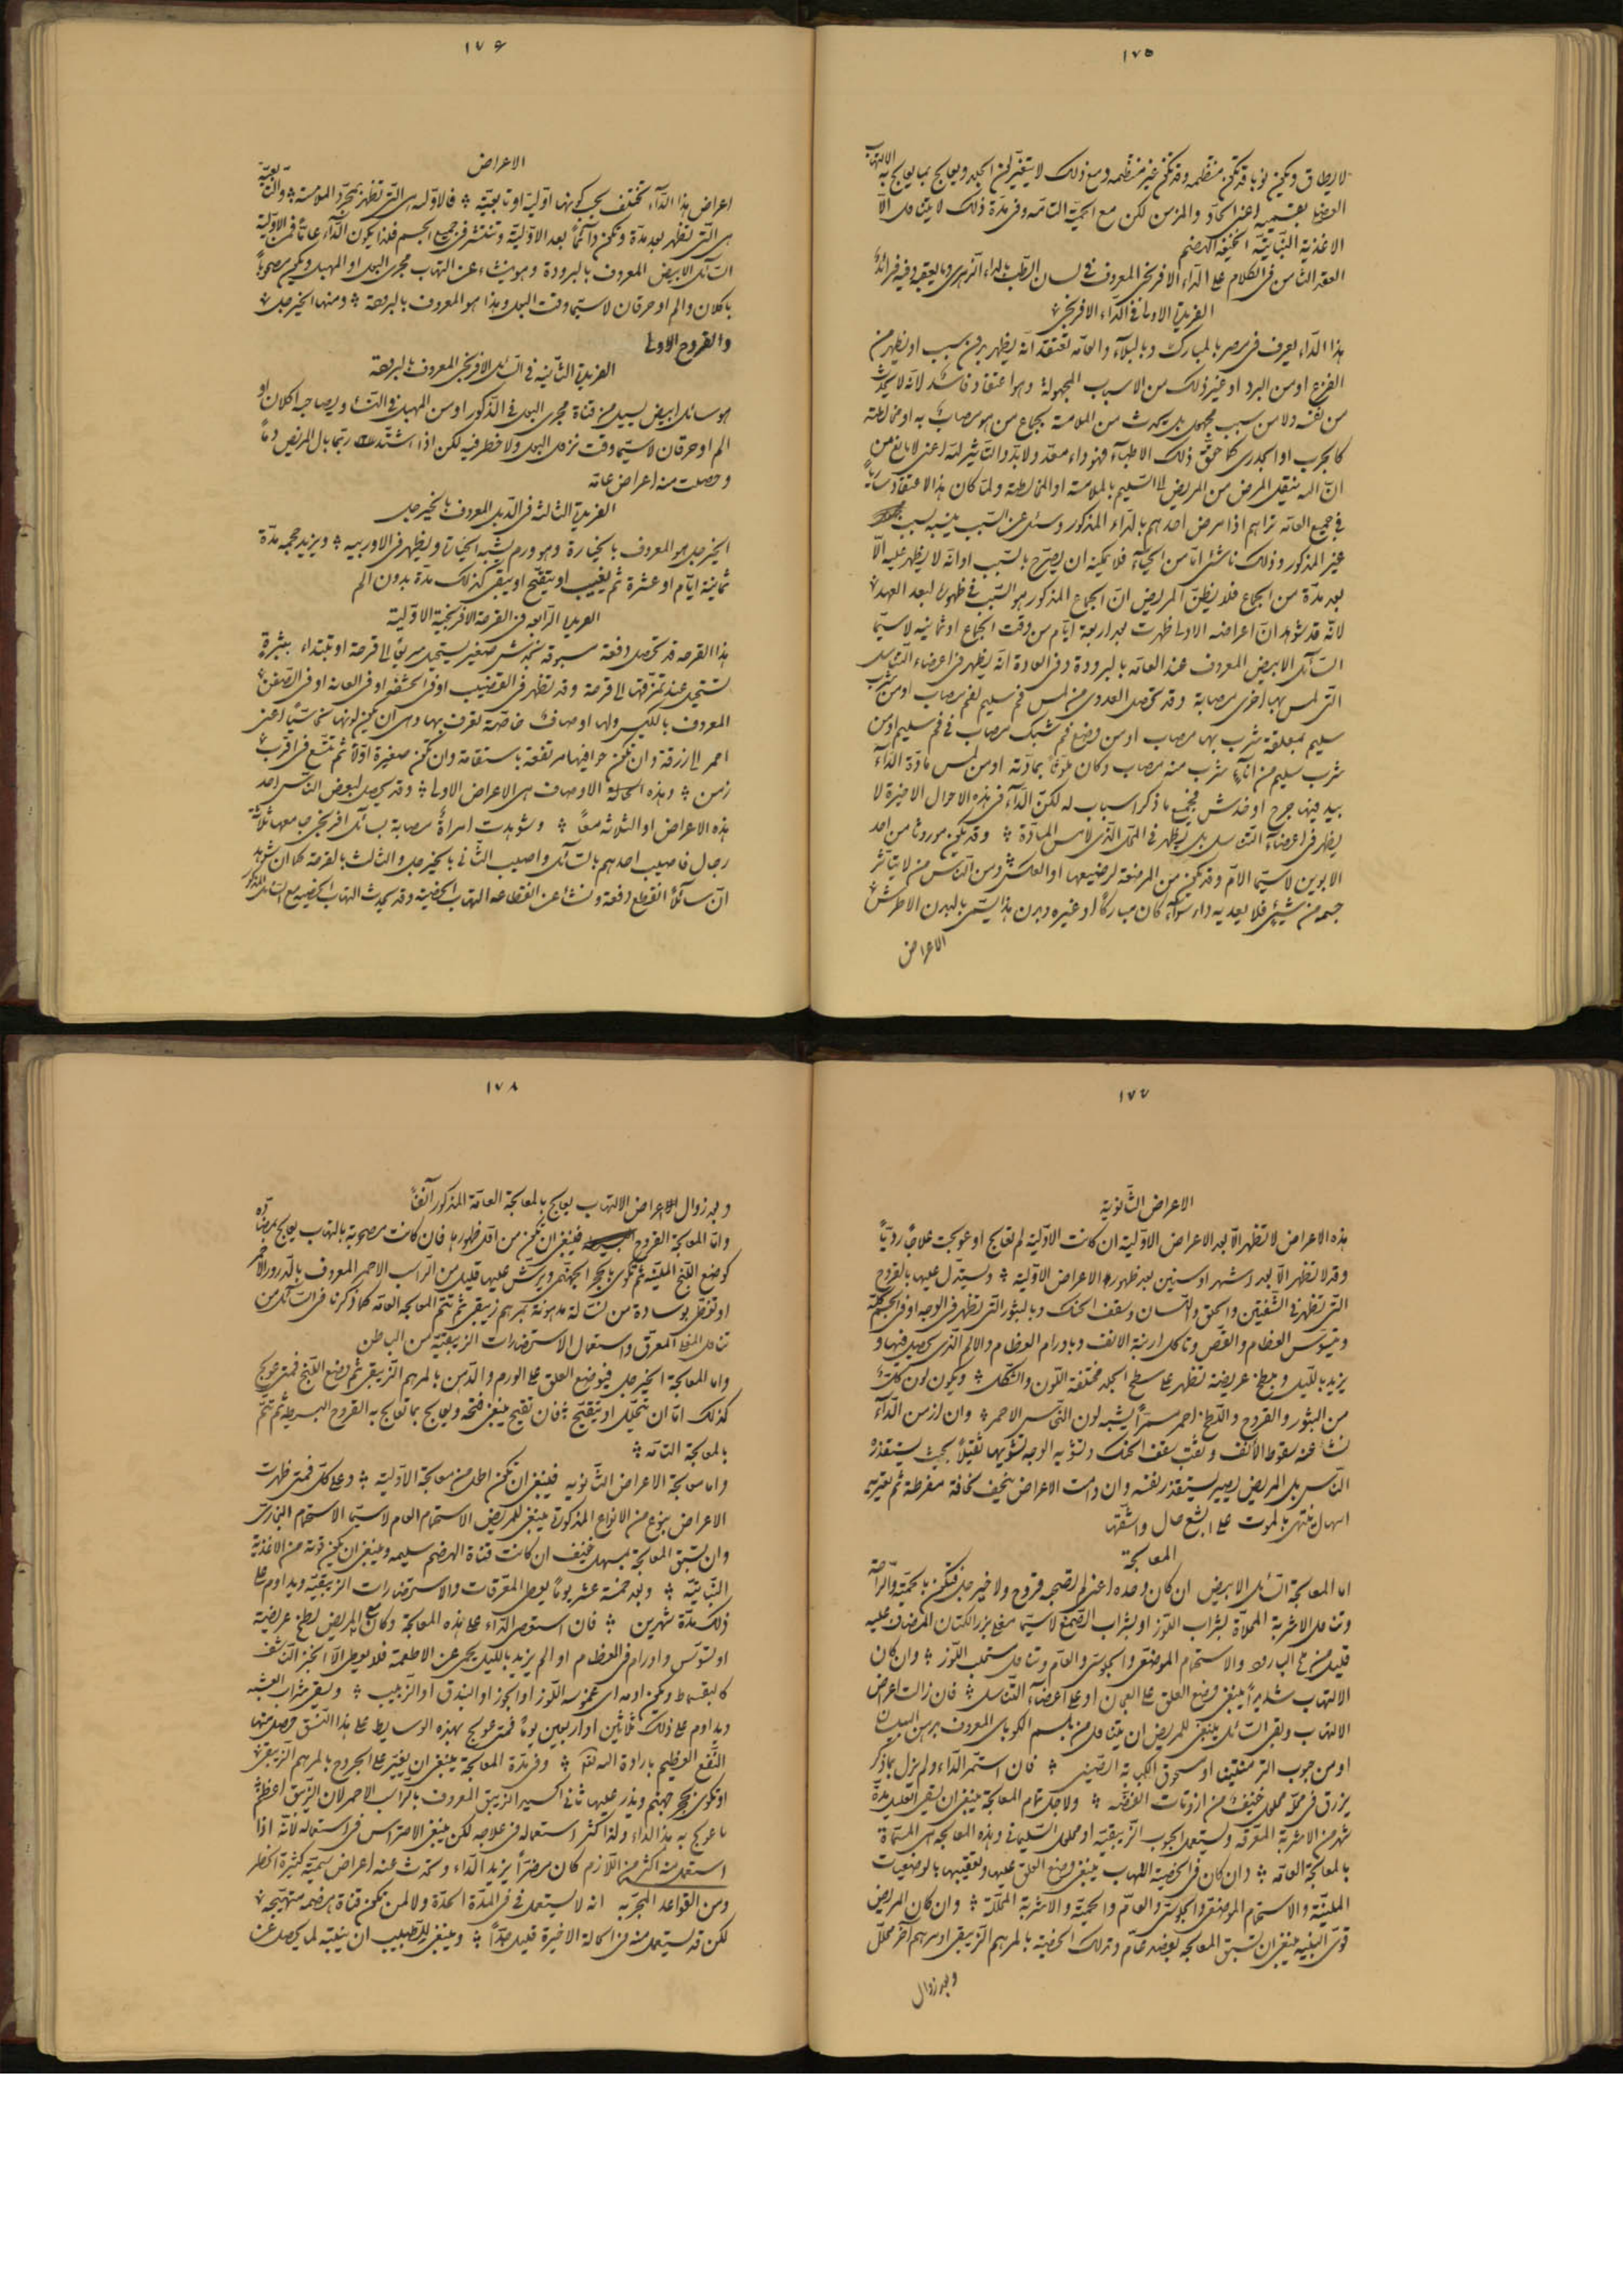 ١٧٥
لا يطاق وتكون نوبا قد تكون منتظمه وقد تكون غير منتظمه ومع ذلك لا يتغير لون الجلد ويعالج بما يعالج به الالتهاب
اعنى الحاد والمزمن لكن مع الحمية التامه وفى مدة ذلك لا يتناول الا
الاغذية النباتية الخفيفة الهضم
العقد الثامن فى الكلام على الداء الافرنجى المعروف فى لسان الطب بالداء الزهرى وما يتعقبه وفيه فرائد
الفريدة الاولى فى الداء الافرنجى
هذا الداء يعرف فى مصر بالمبارك وبالبلاء والعامه تعتقد انه يظهر بدون سبب او يظهر من
الفزع او من البرد او غير ذلك من الاسباب المجهولة وهو اعتقاد فاسد لانه لا يحدث
من نفسه ولا من سبب مجهول بل يحدث من الملامسة بجماع من هو مصاب به او مخالطته
كالجرب او الجدرى كما حقق ذلك الاطباء فهو داء معد ولا بد والتاثير لله اعنى لا مانع من
ان الله ينقل المرض من المريض الى السليم بالملامسة او المخالطة ولما كان هذا الاعتقاد ساريا
فى جميع العامه تراهم اذا مرض احدهم بالداء المذكور وسئل عن السبب ينسبه لسبب
غير المذكور وذلك ناشئ اما من الحياء فلا يمكنه ان يصرح بالسبب او انه لا يظهر عليه الا
بعد مدة من الجماع فلا يظن المريض ان الجماع المذكور هو السبب فى ظهوره لبعد العهد
لانه قد شوهد ان اعراضه الاولى ظهرت بعد اربعة ايام من وقت الجماع او ثمانيه لا سيما
السائل الابيض المعروف عند العامه بالبرودة وفى العادة انه يظهر فى اعضاء التناسل
التى لمس بها اخرى مصابة وقد تحصل العدوى من لمس فم سليم لفم مصاب او من شرب
سليم بمعلقة شرب بها مصاب او من وضع فم شبك مصاب فى فم سليم او من
شرب سليم من اناء شرب منه مصاب وكان ملوثا بمادته او من لمس مادة الداء
بيد فيها جرح او خدش فجميع ما ذكر اسباب له لكن الداء فى هذه الاحوال الاخيرة لا
يظهر فى اعضاء التناسل بل يظهر فى المحل الذى لامس المادة وقد يكون موروثا من احد
الابوين لا سيما الام وقد يكون من المرضعة لرضيعها او بالعكس ومن الناس من لا يتأثر
جسمه من شيئ فلا يعديه داء سواء كان مباركا او غيره وبدن هذا يسمى بالبدن الاطرش
الاعراض
١٧٦
الاعراض
اعراض هذا الداء تختلف بحسب كونها اولية او تابعية فالاوله هى التى تظهر بمجرد الملامسة والتابعية
هى التى تظهر بعد مدة وتكون دائما بعد الاولية وتنتشر فى جميع الجسم فلذا يكون الداء عاما فمن الاولية
السائل الابيض المعروف بالبرودة وهو ينشاء عن التهاب مجرى البول او المهبل ويكون مصحوبا
باكلان والم او حرقان لا سيما وقت البول وهذا هو المعروف بالبرقعة ومنها الخيرجل
والقروح الاولى
الفريدة الثانيه فى السائل الافرنجى المعروف بالبرقعة
هو سائل ابيض يسيل من قناة مجرى البول فى الذكور او من المهبل فى النساء ويصاحبه اكلان او
الم او حرقان لا سيما وقت نزول البول ولا خطر فيه لكن اذا اشتد ربما بال المريض دما
وحصلت منه اعراض عامه
الفريدة الثالثه فى الدبل المعروف بالخيرجل
الخيرجل هو المعروف بالخيارة وهو ورم يشبه الخيارة ويظهر فى الاوربيه ويزيد حجمه مدة
ثمانية ايام او عشرة ثم يغيب او يتقيح او يبقى كذلك مدة بدون الم
الفريدة الرابعه فى القرحة الافرنجية الاولية
هذا القرحه قد تحصل دفعة مسبوقه بخدش صغير يستحيل سريعا الى قرحة او تبتداء ببثرة
تستحيل عند تمزقها الى قرحة وقد تظهر فى القضيب او فى الحشفه او فى العانه او فى الصفن
المعروف بالكيس ولها اوصاف خاصة تعرف بها وهى ان يكون لونها
احمر الى زرقة وان تكون حوافيها مرتفعة باستقامة وان تكون صغيرة اولا ثم تتسع فى اقرب
زمن وهذه الاوصاف هى الاعراض الاولى وقد يحصل لبعض الناس احد
هذه الاعراض او الثلاثه معا وشوهدت امراة مصابة بسائل افرنجى جامعها ثلاثة
رجال فاصيب احدهم بالسائل واصيب الثانى بالخيرجل والثالث بالقرحه كما ان شوهد
ان سائلا انقطع دفعة ونشأ عن انقطاعه التهاب الخصية وقد يحدث التهاب الخصية مع السائل المذكور
١٧٧
الاعراض الثانوية
هذه الاعراض لا تظهر الا بعد الاعراض الاولية ان كانت الاولية لم تعالج او عولجت علاجا رديا
وقد لا تظهر الا بعد اشهر او سنين بعد ظهور الاعراض الاولية ويستدل عليها بالقروح
التى تظهر فى الشفتين والحلق واللسان وسقف الحنك وبالبثور التى تظهر فى الوجه او فى الجسم كله
وبتسوس العظام والقص وتاكل ارنبة الانف وباورام العظام والالم الذى يحصل فيها و
يزيد بالليل وببطخ عريضة تظهر على سطح الجلد مختلفة اللون والشكل ويكون لون كل
من البثور والقروح واللطخ احمر مسمرا يشبه لون النحاس الاحمر وان ازمن الداء
نشأ عنه سقوط الانف وثقب سقف الحنك وتشويه الوجه تشويها ثقيلا بحيث يستقذره
الناس بل المريض يصير يستقذر نفسه وان دامت الاعراض ينحف نحافة مفرطة ثم يعتريه
اسهال ينتهى بالموت على ابشع حال واشقها
المعالجة
اما المعالجة السائل الابيض ان كان وحده اعنى لم تصحبه قروح ولا خيرجل فتكون بالحمية والراحة
وتناول الاشربة المحلاة بشراب اللوز او بشراب الصمغ لا سيما مغلى بزر الكتان المضاف عليه
قليل من ملح البارود والاستحمام الموضعى والجلوسى والعام وتناول مستحلب اللوز وان كان
الالتهاب شديدا ينبغى وضع العلق على العجان او على اعضاء التناسل فان زالت اعراض
الالتهاب وبقى السائل ينبغى للمريض ان يتناول من بلسم الكوباى المعروف بدهن البيلسان
او من حبوب الترمنتينا او مسحوق الكبابه الصينى فان استمر الداء ولم يزل بما ذكر
يزرق فى محله محلول خفيف من ازوتات الفضه ولاجل تمام المعالجة ينبغى ان يسقى العليل مدة
شهر من الاشربة المعرقه ويستعمل الحبوب الزيبقيه او محلول السليمانى وهذه المعالجه هى المسماة
بالمعالجة العامه وان كان فى الخصية التهاب ينبغى وضع العلق عليها وتعقيبها بالوضعيات
الملينة والاستحمام الموضعى والجلوسى والعام والحمية والاشربة المحللة وان كان المريض
قوى البنيه ينبغى ان تسبق المعالجه بفصد عام وتدلك الخصية بالمرهم الزيبقى او مرهم آخر محلل
وبعد زوال
١٧٨
وبعد زوال الاعراض الالتهاب يعالج بالمعالجة العامة المذكور آنفا
واما المعالجة القروح فينبغى ان تكون من اول ظهورها فان كانت مصحوبة بالتهاب يعالج بمضاده
كوضع اللبخ الملينة ثم تكوى بالحجر الجهنمى ويرش عليها قليل من الراسب الاحمر المعروف بالذرور الاحمر
او تغطى بوسادة من نسالة مدهونة بمرهم زيبقى ثم تتم المعالجه العامه كما ذكرنا فى السائل من
تناول المعرق واستعمال الاستحضارات الزيبقية من الباطن
واما المعالجة الخيرجل فبوضع العلق على الورم والدهن بالمرهم الزيبقى ثم وضع اللبخ فمتى عولج
كذلك اما ان يتحلل او يتقيح فان تقيح ينبغى فتحه ويعالج بما تعالج به القروح البسيطه ثم تتم
بالمعالجة التامه
واما معالجة الاعراض الثانويه فينبغى ان تكون اطول من معالجة الاولية وعلى كل فمتى ظهرت
الاعراض بنوع من الانواع المذكورة ينبغى للمريض الاستحمام العام لا سيما الاستحمام البخارى
وان تسبق المعالجة بمسهل خفيف ان كانت قناة الهضم سليمه وينبغى ان يكون قوته من الاغذية
النباتية وبعد خمسة عشر يوما يعطى المعرقات والاستحضارات الزيبقيه ويداوم على
ذلك مدة شهرين فان استعصى الداء على هذه المعالجة وكان مع المريض لطخ عريضة
او تسوس واورام فى العظام او الم يزيد بالليل يحمى عن الاطعمة فلا يعطى الا الخبز الناشف
كالبقسماط ويكون ادمه اى غموسه اللوز او الجوز او البندق او الزبيب ويسقى شراب العشبه
ويداوم على ذلك ثلاثين او اربعين يوما فمتى عولج بهذه الوسايط على هذا النسق حصل منها
النفع العظيم بارادة الله وفى مدة المعالجة ينبغى ان يغير على الجروح بالمرهم الزيبقى
او تكوى بحجر جهنم ويذر عليها ثانى اكسيد الزيبق المعروف بالراسب الاحمر لان الزيبق اعظم
ما عولج به هذا الداء ولذا كثر استعماله فى علاجه لكن ينبغى الاحتراس فى استعماله لانه اذا
استعمل منه اكثر من اللازم كان مضرا يزيد الداء وتحدث عنه اعراض سمية كثيرة الخطر
ومن القواعد المجربه انه لا يستعمل فى المدة الحادة ولا لمن تكون قناة هضمه متهيجه
لكن قد يستعمل منه فى الحالة الاخيرة قليل جدا وينبغى للطبيب ان ينتبه لما يحصل عن